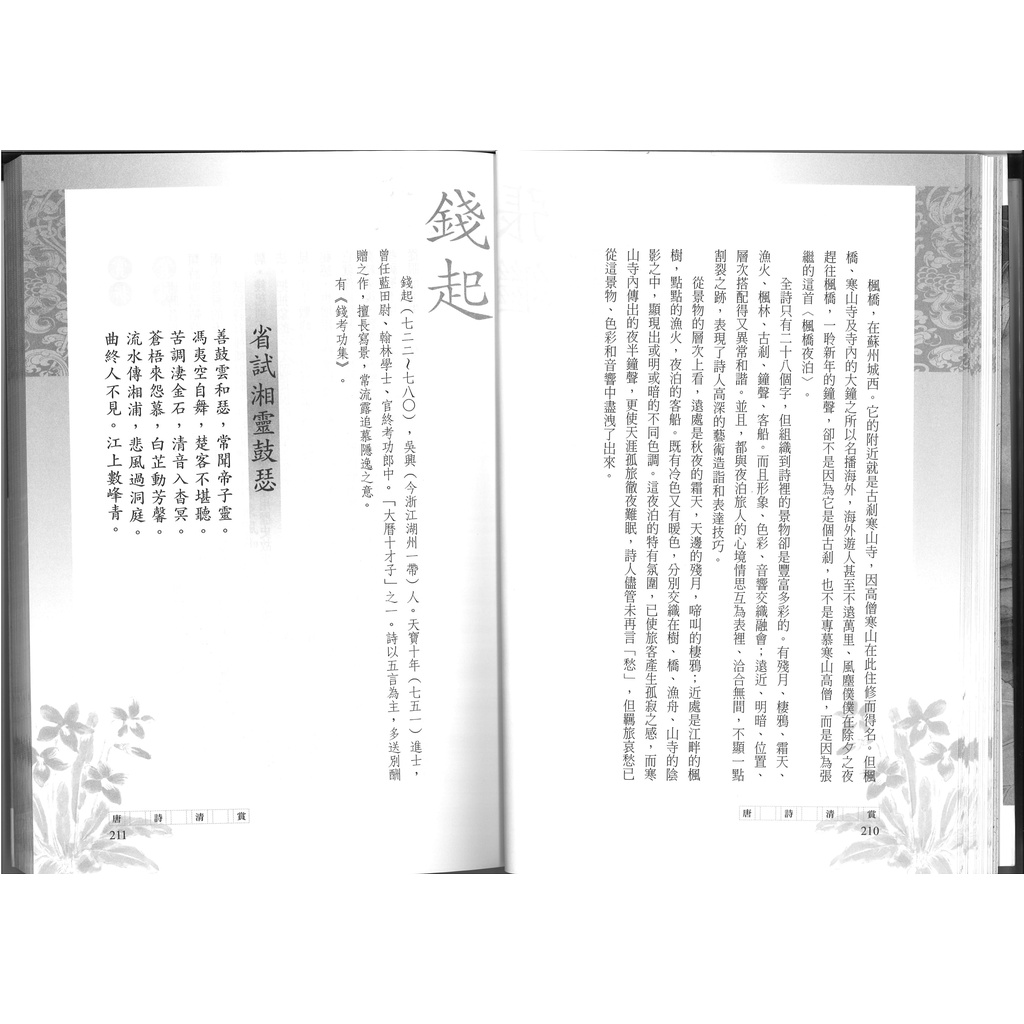 楓橋，在蘇州城西。它的附近就是古剎寒山寺，因高僧寒山在此住修而得名。但楓
橋、寒山寺及寺內的大鐘之所以名播海外，海外遊人甚至不遠萬里、風塵僕僕在除夕之夜
趕往楓橋，一聆新年的鐘聲，卻不是因為它是個古剎，也不是專慕寒山高僧，而是因為張
繼的這首〈楓橋夜泊〉。
全詩只有二十八個字，但組織到詩裡的景物卻是豐富多彩的。有殘月、棲鴉、霜天、
漁火、楓林、古剎、鐘聲、客船。而且形象、色彩、音響交織融會；遠近、明暗、位置、
層次搭配得又異常和諧。並且，都與夜泊旅人的心境情思互為表裡、洽合無間，不顯一點
割裂之跡，表現了詩人高深的藝術造詣和表達技巧。
從景物的層次上看，遠處是秋夜的霜天，天邊的殘月，啼叫的棲鴉；近處是江畔的楓
樹，點點的漁火，夜泊的客船。既有冷色又有暖色，分別交織在樹、橋、漁舟、山寺的陰
影之中，顯現出或明或暗的不同色調。這夜泊的特有氛圍，已使旅客產生孤寂之感，而寒
山寺內傳出的夜半鐘聲，更使天涯孤旅徹夜難眠，詩人儘管未再言「愁」，但羈旅哀愁已
從這景物、色彩和音響中盡洩了出來。
唐詩清賞
210
錢起
錢起（七二二～七八〇），吳興（今浙江湖州一帶）人。天寶十年（七五一）進士，
曾任藍田尉、翰林學士、官終考功郎中。「大曆十才子」之一。詩以五言為主，多送別酬
贈之作，擅長寫景，常流露追慕隱逸之意。
有《錢考功集》。
省試湘靈鼓瑟
善鼓雲和瑟，常聞帝子靈。
馮夷空自舞，楚客不堪聽。
苦調淒金石，清音入杳冥。
蒼梧來怨慕，白芷動芳馨。
流水傳湘浦，悲風過洞庭。
曲終人不見。江上數峰青。
唐詩清賞
211